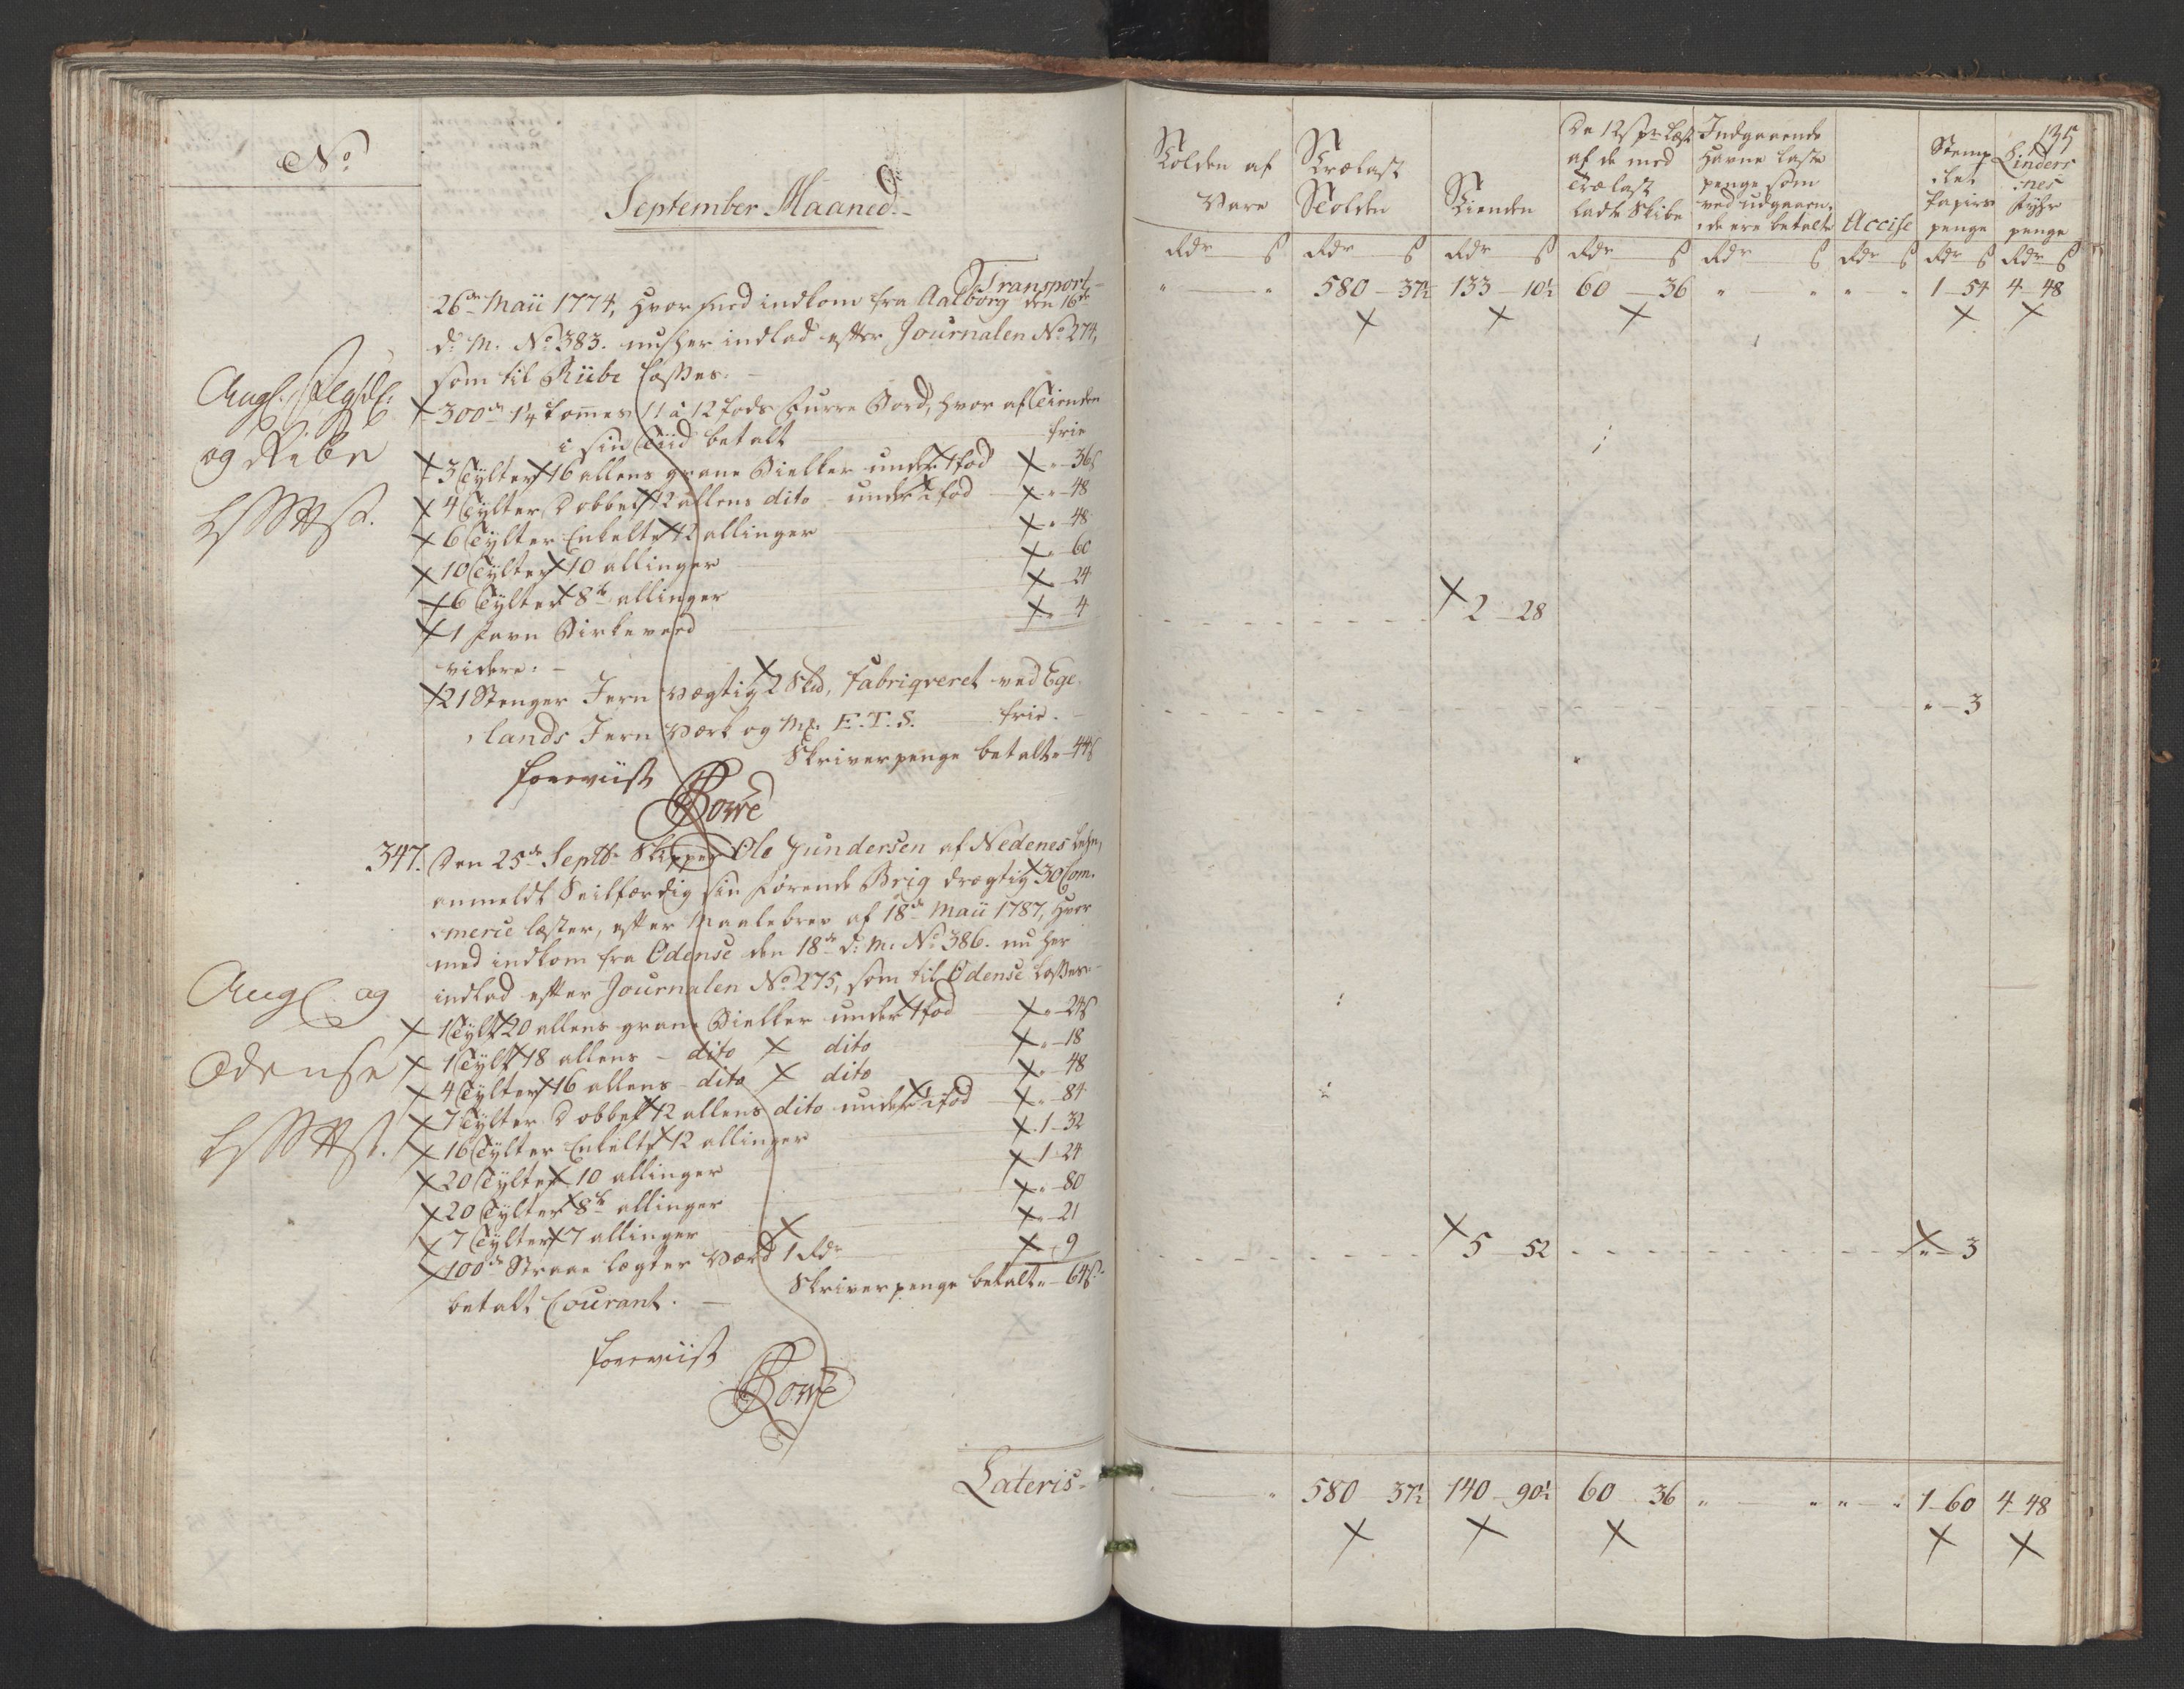 No
September Maaned.
Transport
26de Maii 1774, hvor med indkom fra Aalborg den 16de
d: M. No 383. nu her indlad efter Journalen No 274,
som til Riibe losses.
300de 1¼ tommes 11 à 12 fods Furre Bord, hvor af Tienden
i sin Tiid betalt frie
3 Tylter 16 allens grane Bielker under 1 fod " 36ß
4 Tylter Dobbelt 12 allens dito under ½ fod " 48
6 Tylter Enkelte 12 allinger " 48
10 Tylter 10 allinger " 60
6 Tylter 8te allinger " 24
1 Favn Birkeveed " 4
videre:
21 Stenger Jern vægtig 2 Skd, Fabriqveret ved Ege
lands Jern Værk og Mk. E.T.S. frie.
Skriverpenge betalt " 44ß
foreviist
Bowe
347. Den 25de Septbr Skipper Ole Gundersen af Nedenes Lehn,
anmeldt Seilfærdig sin førende Brig drægtig 30 Com-
merce læster, efter Maalebrev af 18de Maii 1787, hvor
med indkom fra Odense den 18de d: M. No 386. nu her
indlad efter Journalen No 275, som til Odense losses
1 Tylt 20 allens grane Bielker under 1 fod " 24ß
1 Tylt 18 allens dito dito " 18
4 Tylter 16 allens dito dito " 48
7 Tylter Dobbelt 12 allens dito under ½ fod " 84
16 Tylter Enkelte 12 allinger 1 32
20 Tylter 10 allinger 1 24
20 Tylter 8te allinger " 80
7 Tylter 7 allinger " 21
100de Straae lægter værd 1 Rdr " 9
Skriverpenge betalt " 64ß
betalt Courant.
foreviist
Bowe
Lateris
og Ribe
Augl og
Odense
135
Tolden af Vare
Trælast Tolden
Tienden
De 12ß pr Læst af de med Trælast ladte Skibe
Indgaaende Havne Laste penge som ved udgaaen-de ere betalte
Accise
Stemp-let Papiirs penge
Linders-nes Fyhr penge
Rdr ß Rdr ß Rdr ß Rdr ß Rdr ß Rdr ß Rdr ß Rdr ß
" " 580 37½ 133 10½ 60 36 " " " " 1 54 4 48
2 28
" 3
5 52 " 3
" " 580 37½ 140 90½ 60 36 " " " " 1 60 4 48